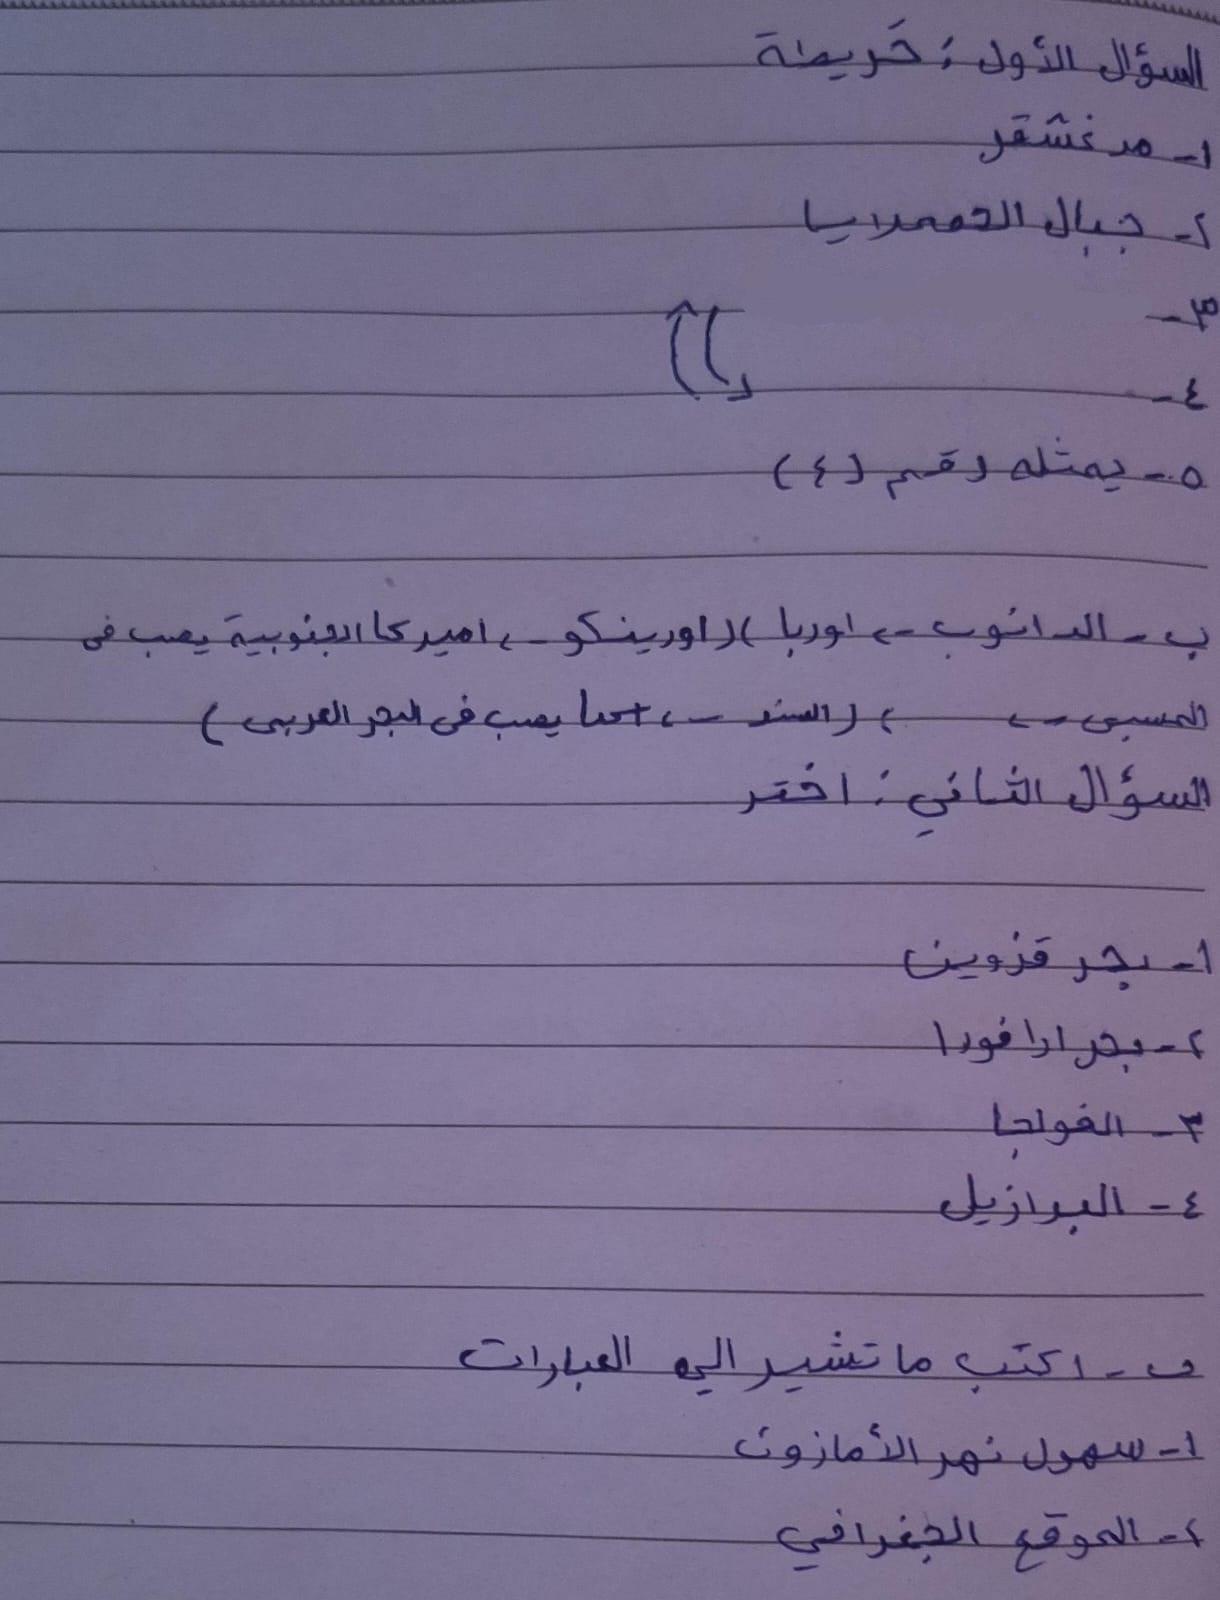 السؤال الأول : خريطة
١- مدغشقر
٢- جبال الهمملايا
٣-
٤-
٥- يمثله رقم (٤)
ب- الدانوب ← اوربا )( اورينكو ← اميركا الجنوبية يصب فى
المسبى ← ) ( السند ← اسيا يصب فى البحر العربى )
السؤال الثاني : اختر
١- بحر قزوين
٢- بحر ارافورا
٣- الفولجا
٤- البرازيل
ب- اكتب ما تشير الي العبارات
١- سهول نهر الأمازون
٢- الموقع الجغرافي